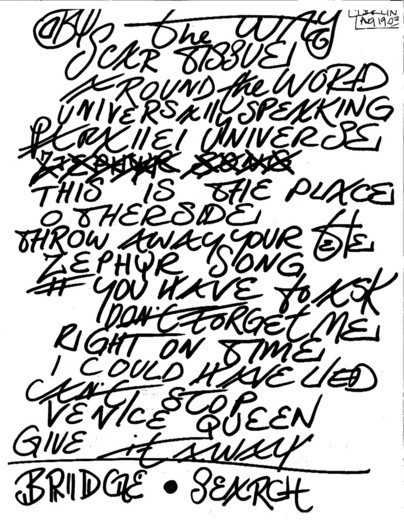 BY the WAY
SCAR TISSUE
AROUND the WORLD
UNIVERSALLY SPEAKING
PARALLEL UNIVERSE
ZEPHYR SONG
THIS IS THE PLACE
OTHERSIDE
THROW AWAY YOUR T.E
ZEPHYR SONG
# YOU HAVE to ASK
DON'T FORGET ME
RIGHT ON TIME
I COULD HAVE LIED
CAN'T STOP
VENICE QUEEN
GIVE it AWAY
BRIDGE • SEARCH